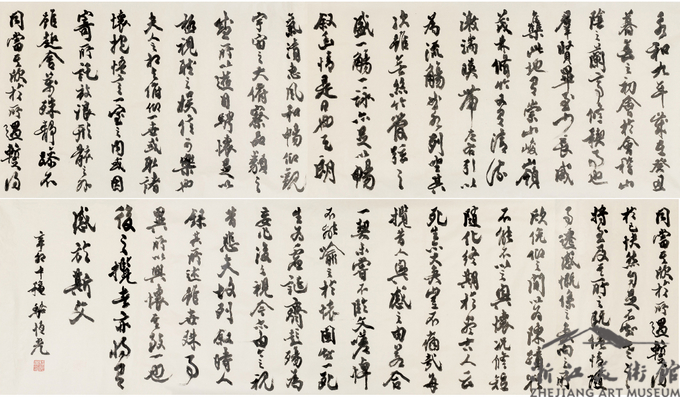 永和九年歲在癸丑
暮春之初會於會稽山
陰之蘭亭脩禊事也
群賢畢至少長咸
集此地有崇山峻嶺
茂林脩竹又有清流
激湍暎帶左右引以
為流觴曲水列坐其
次雖無絲竹管絃之
盛一觴一詠亦足以暢
敘幽情是日也天朗
氣清惠風和暢仰觀
宇宙之大俯察品類之
盛所以遊目騁懷足以
極視聽之娛信可樂也
夫人之相與俯仰一世或取諸
懷抱悟言一室之內或因
寄所託放浪形骸之外
雖趣舍萬殊靜躁不
同當其欣於所遇蹔得
同當其欣於所遇蹔得
於己快然自足不知老之
將至及其所之既惓情隨
事遷感慨係之矣向之所
欣俛仰之間以為陳跡猶
不能不以之興懷況脩短
隨化終期於盡古人云
死生亦大矣豈不痛哉每
攬昔人興感之由若合
一契未嘗不臨文嗟悼
不能喻之於懷固知一死
生為虛誕齊彭殤為
妄作後之視今亦由今之視
昔悲夫故列敘時人
錄其所述雖世殊事
異所以興懷其致一也
後之攬者亦將有
感於斯文
辛卯十種駱恆光
浙江美術館
ZHEJIANG ART MUSEUM